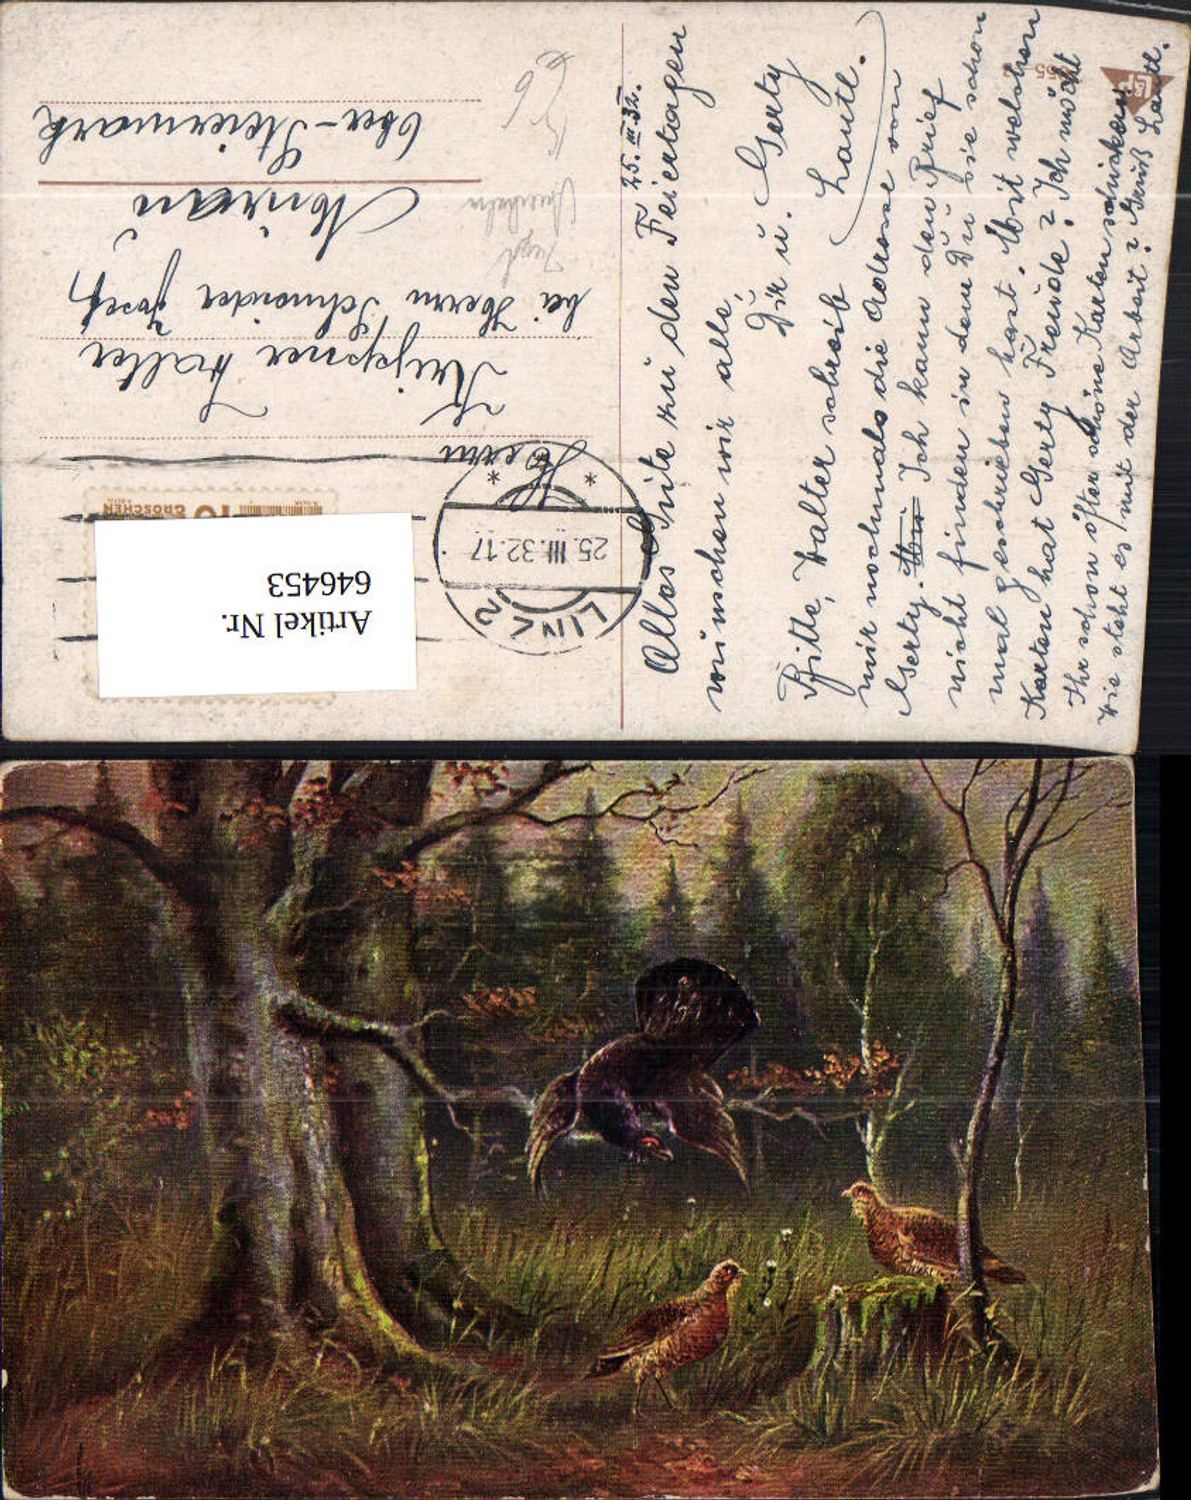 25. III. 32.
Alles Gute zu den Feiertagen
wünschen wir alle,
Dir u. Gerty
Bitte, Walter schreib Hautl.
mir nochmals die Adresse von
Gerty. Ich kann den Brief
nicht finden in dem Du sie schon
mal geschrieben hast. Mit welchen
Karten hat Gerty Freude? Ich möcht
Ihr schon öfter schöne Karten schicken
Wie steht es mit der Arbeit? Gruß Hautl.
LINZ 2
25. III. 32. 17
* *
10 GROSCHEN
Artikel Nr.
646453
Herrn
Walter
bei Herrn Schneider Josef
Ober-Steiermark